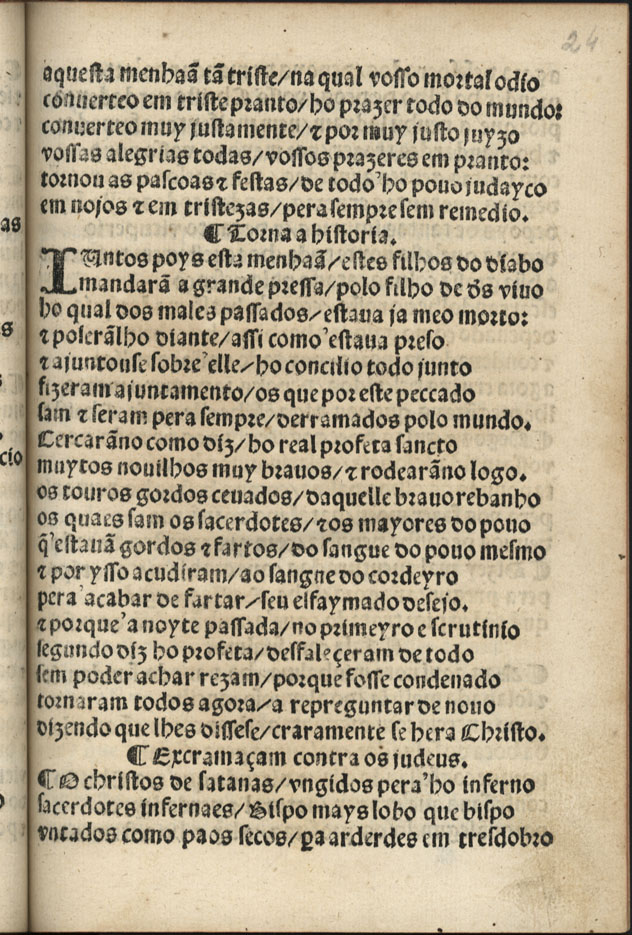 24
aquesta menhaã tã triste/na qual vosso mortal odio
conuerteo em triste pranto/ho prazer todo do mundo:
conuerteo muy justamente/⁊ por muy justo juyzo
vossas alegrias todas/vossos prazeres em pranto:
tornou as pascoas ⁊ festas/de todo ho pouo judayco
em nojos ⁊ em tristezas/pera sempre sem remedio.
¶ Torna a historia.
IUntos poys esta menhaã/estes filhos do diabo
mandarã a grande pressa/polo filho de d̃s viuo
ho qual dos males passados/estaua ja meo morto:
⁊ poserãlho diante/assi como estaua preso
⁊ ajuntouse sobre elle/ho concilio todo junto
fizeram ajuntamento/os que por este peccado
sam ⁊ seram pera sempre/derramados polo mundo.
Cercarãno como diz/ho real profeta sancto
muytos nouilhos muy brauos/⁊ rodearãno logo.
os touros gordos ceuados/daquelle brauo rebanho
os quaes sam os sacerdotes/⁊ os mayores do pouo
q̃ estauã gordos ⁊ fartos/do sangue do pouo mesmo
⁊ por ysso acudiram/ao sangue do cordeyro
pera acabar de fartar/seu esfaymado desejo.
⁊ porque a noyte passada/no primeyro escrutinio
segundo diz ho profeta/desfaleçeram de todo
sem poder achar rezam/porque fosse condenado
tornaram todos agora/a repreguntar de nouo
dizendo que lhes dissese/craramente se hera Christo.
¶ Excramaçam contra os judeus.
¶ O christos de satanas/vngidos pera ho inferno
sacerdotes infernaes/Bispo mays lobo que bispo
vntados como paos secos/ꝑa arderdes em tresdobro
as
s
cio